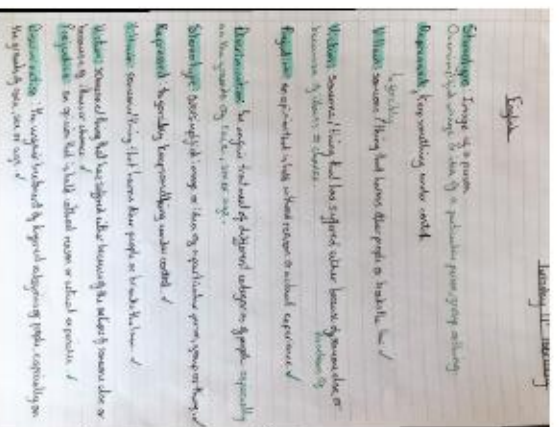 Tuesday 11
English
Stereotype: Image of a person
Oversimplified image or idea of a particular person, group or thing.
Represent: keep something under control
forcibly
Villain: someone/thing that harms other people or breaks the law ✓
Victim: someone/thing that has suffered either because of someone else, or
because of illness or chance.
Prejudice: an opinion that is held without reason or actual experience ✓
Discrimination: the unjust treatment of different categories of people especially
on the grounds of race, sex or age.
Stereotype: oversimplified image or idea of a particular person, group or thing. ✓
Repressed: to forcibly keep something under control ✓
Villain: someone/thing that harms other people or breaks the law ✓
Victim: someone/thing that has suffered either because of the actions of someone else or
because of illness or chance ✓
Prejudice: an opinion that is held without reason or actual experience ✓
Discrimination: the unjust treatment of different categories of people, especially on
the grounds of race, sex or age. ✓